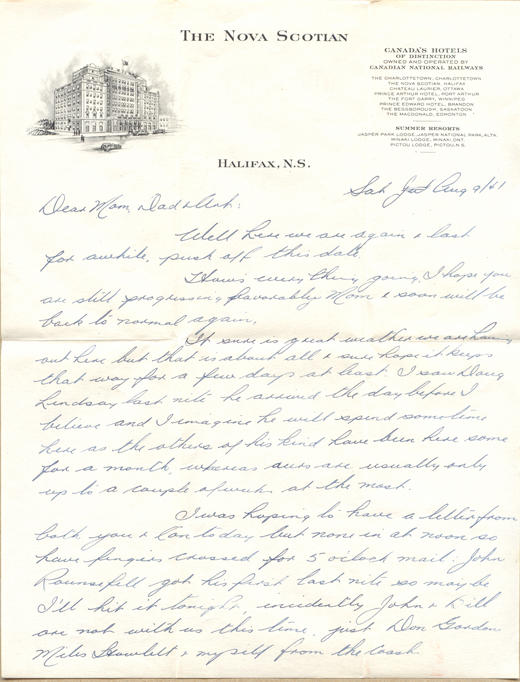 THE NOVA SCOTIAN
CANADA'S HOTELS
OF DISTINCTION
OWNED AND OPERATED BY
CANADIAN NATIONAL RAILWAYS
THE CHARLOTTETOWN, CHARLOTTETOWN
THE NOVA SCOTIAN, HALIFAX
CHATEAU LAURIER, OTTAWA
PRINCE ARTHUR HOTEL, PORT ARTHUR
THE FORT GARRY, WINNIPEG
PRINCE EDWARD HOTEL, BRANDON
THE BESSBOROUGH, SASKATOON
THE MACDONALD, EDMONTON
SUMMER RESORTS
JASPER PARK LODGE, JASPER NATIONAL PARK, ALTA.
MINAKI LODGE, MINAKI, ONT.
PICTOU LODGE, PICTOU, N.S.
HALIFAX, N.S.
Sat Aug 9/41
Dear Mom, Dad & Art:
Well here we are again & last
for awhile, push off this date.
Hows everything going, I hope you
are still progressing favorably Mom & soon will be
back to normal again.
It sure is great weather we are having
out here but that is about all & sure hope it keeps
that way for a few days at least. I saw Doug
Lindsay last nite he arrived the day before I
believe and I imagine he will spend sometime
here as the others of his kind have been here some
for a month, whereas ours are usually only
up to a couple of weeks at the most.
I was hoping to have a letter from
both you & Con today but none in at noon so
have fingers crossed for 5 oclock mail. John
Rounsefill got his first last nite so maybe
I'll hit it tonight, incidently John & Bill
are not with us this time, just Don Gordon
Miles Howlett & myself from the coast.